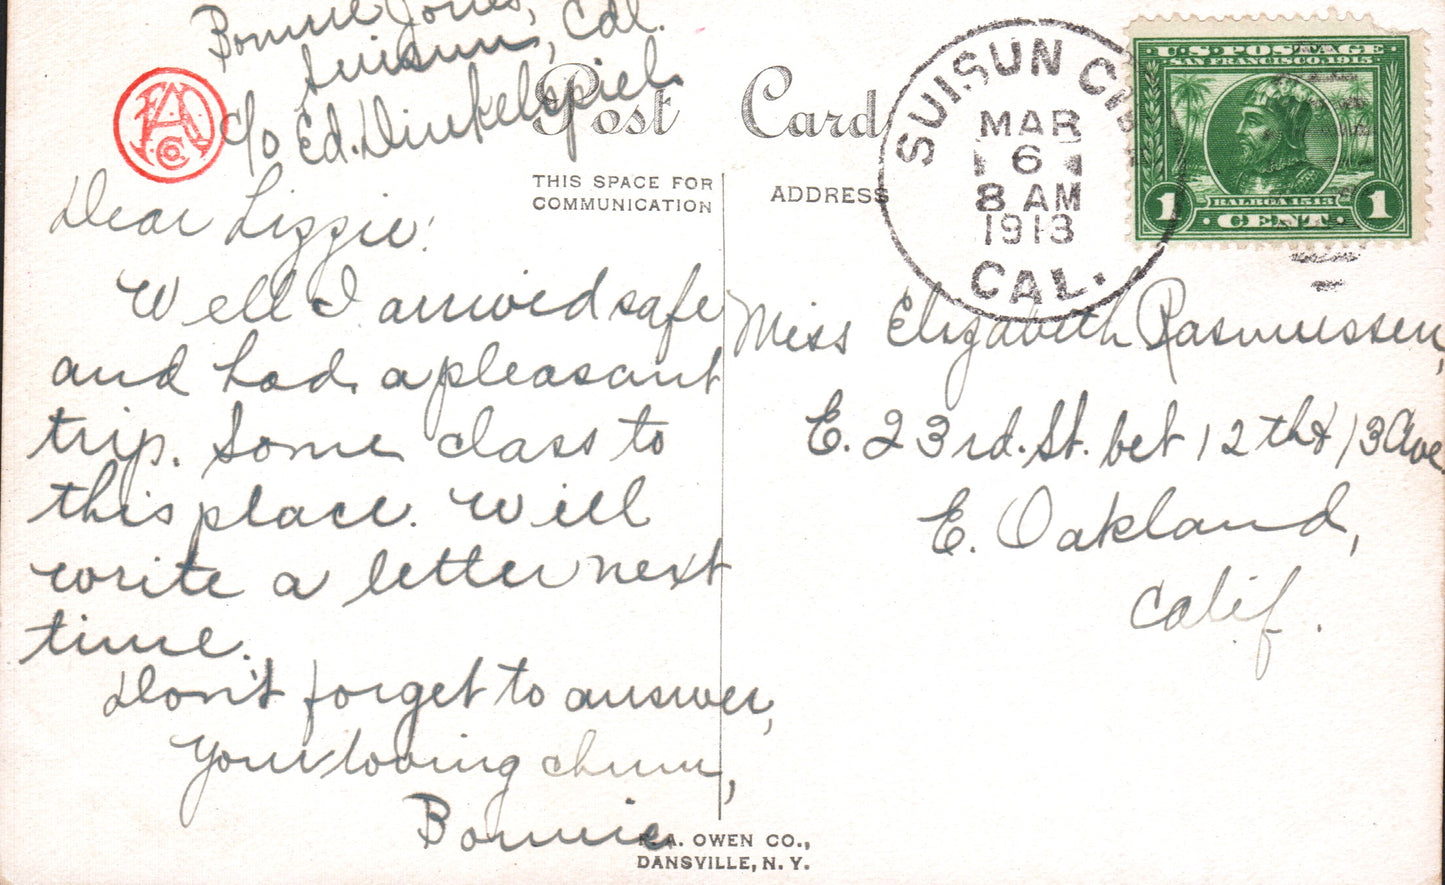 Bonnie Jones,
Suisun, Cal.
c/o Ed. Dinkelspiel
Post Card
THIS SPACE FOR
COMMUNICATION
ADDRESS
SUISUN CITY
MAR
6
8 AM
1913
CAL.
U.S. POSTAGE
SAN FRANCISCO, 1915
BALBOA 1513
1 CENT 1
Dear Lizzie:
Well I arrived safe
and had a pleasant
trip. Some class to
this place. Will
write a letter next
time.
Don't forget to answer,
Your loving chum,
Bonnie
Miss Elizabeth Rasmussen,
E. 23rd. St. bet 12th & 13 Ave
E. Oakland,
Calif.
F. A. OWEN CO.,
DANSVILLE, N. Y.